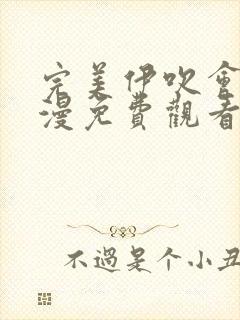 完美伊吹會
漫免費觀看
不過是个小丑